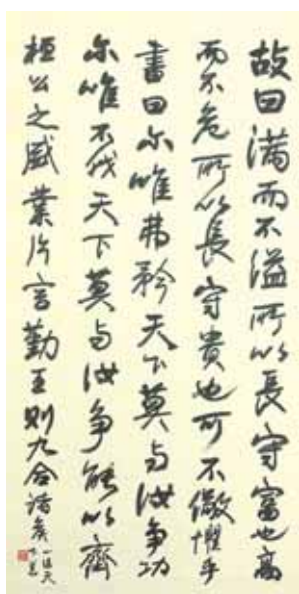 故曰满而不溢所以長守富也高
而不危所以長守貴也可不儆懼乎
書曰尔唯弗矜天下莫与汝争功
尔唯不伐天下莫与汝争能以齊
桓公之盛業片言勤王则九合诸矦